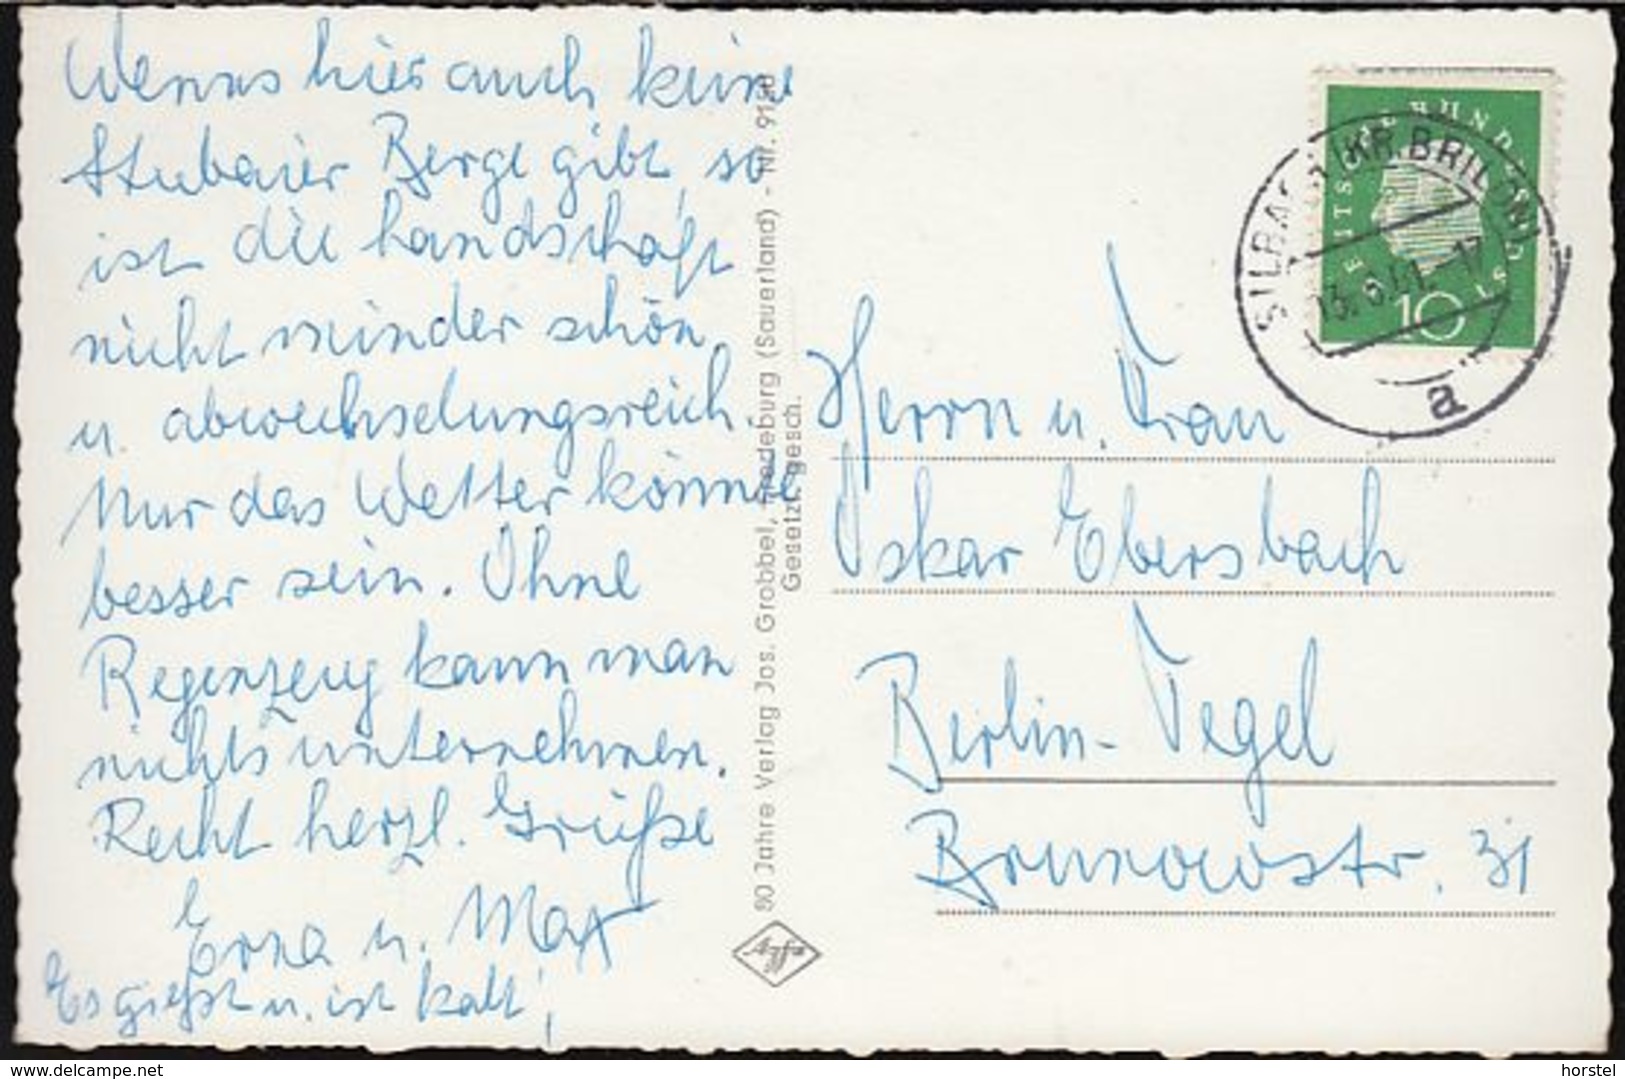 Wenns hier auch keine
Stubaier Berge gibt, so
ist die Landschaft
nicht minder schön
u. abwechselungsreich.
Nur das Wetter könnte
besser sein. Ohne
Regenzeug kann man
nichts unternehmen.
Recht herzl. Grüße
Erna u. Max
Es gießt u. ist kalt!
80 Jahre Verlag Jos. Grobbel, Fredeburg (Sauerland) - Nr. 91
Gesetzl. gesch.
Agfa
DEUTSCHE BUNDESPOST
10
SILBACH (KR. BRILON)
13. 6. 61. - 17
a
Herrn u. Frau
Oskar Ebersbach
Berlin-Tegel
Brunowstr. 31
www.delcampe.net
horstel